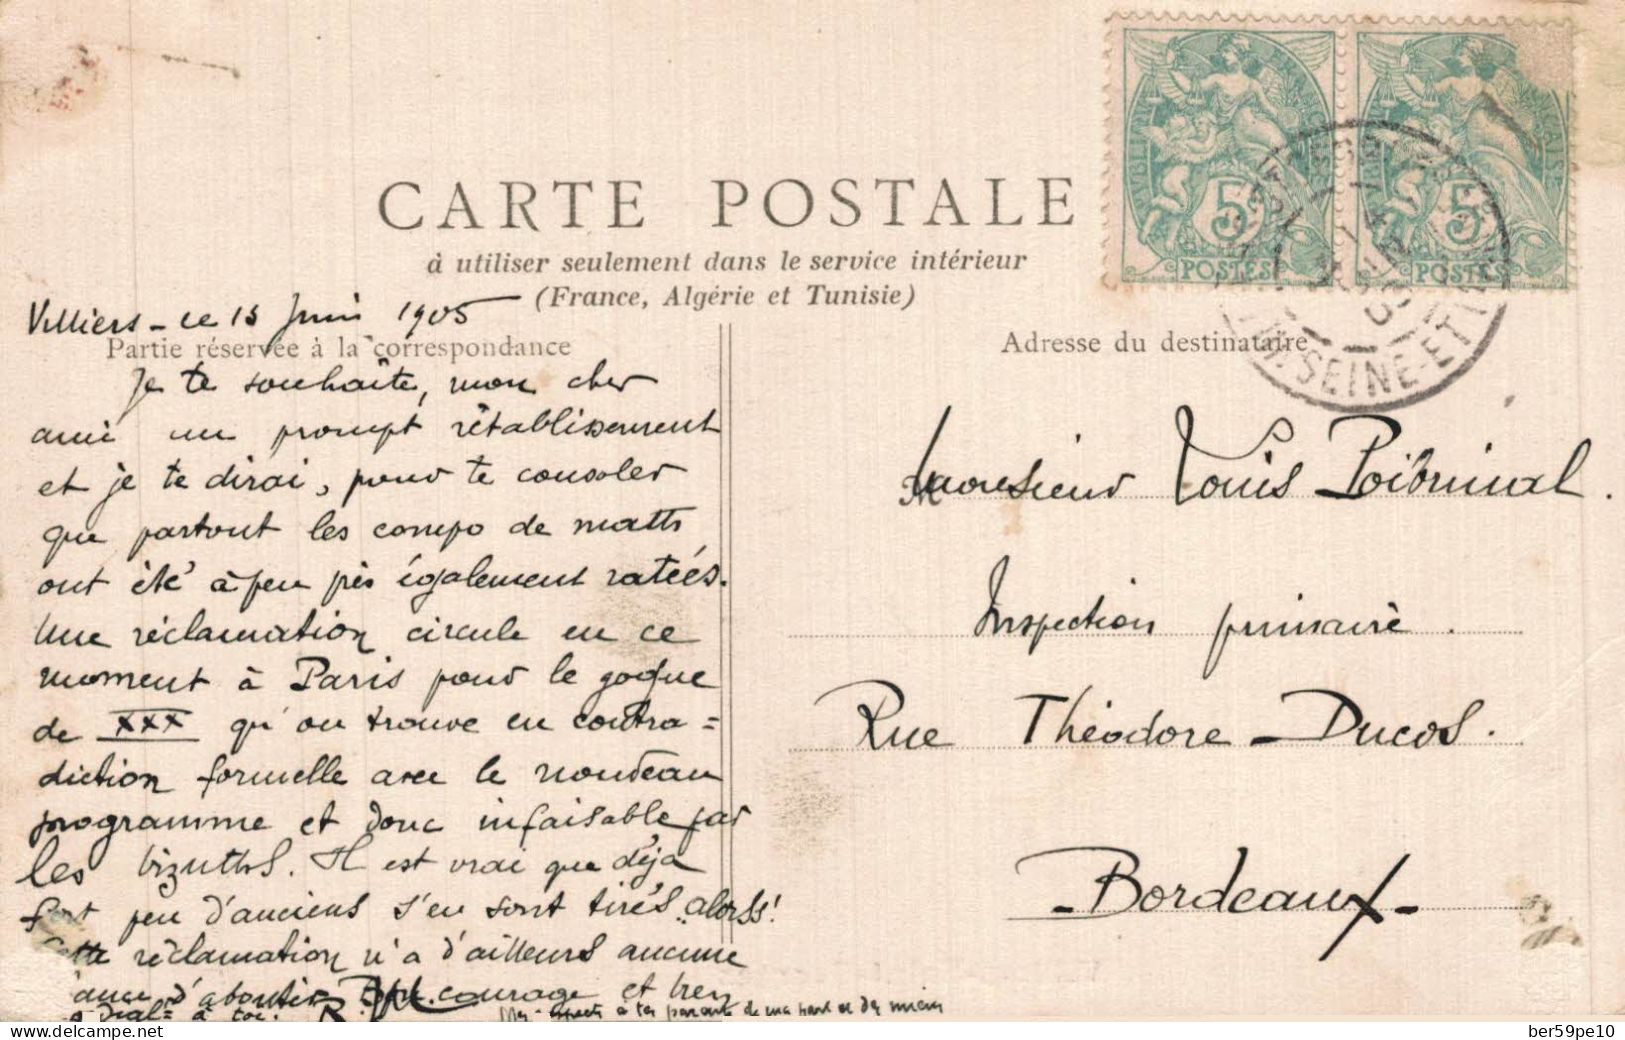 CARTE POSTALE
à utiliser seulement dans le service intérieur
(France, Algérie et Tunisie)
Villiers - le 15 Juin 1905
Partie réservée à la correspondance
Je te souhaite, mon cher
ami un prompt rétablissement
et je te dirai, pour te consoler
que partout les compo de maths
ont été à peu près également ratées.
Une réclamation circule en ce
moment à Paris pour le gogue
de XXX qu'on trouve en contra=
diction formelle avec le nouveau
programme et donc infaisable par
les bizuths. Il est vrai que déjà
fort peu d'anciens s'en sont tirés, alorss!
Cette réclamation n'a d'ailleurs aucune
d'aboutir courage et bien
à toi.
à tes parents de ma part et des miens
Adresse du destinataire
Monsieur Louis Poibrinal.
Inspection primaire.
Rue Théodore - Ducos.
- Bordeaux -
5
POSTES
5
POSTES
SEINE-ET
ber59pe10